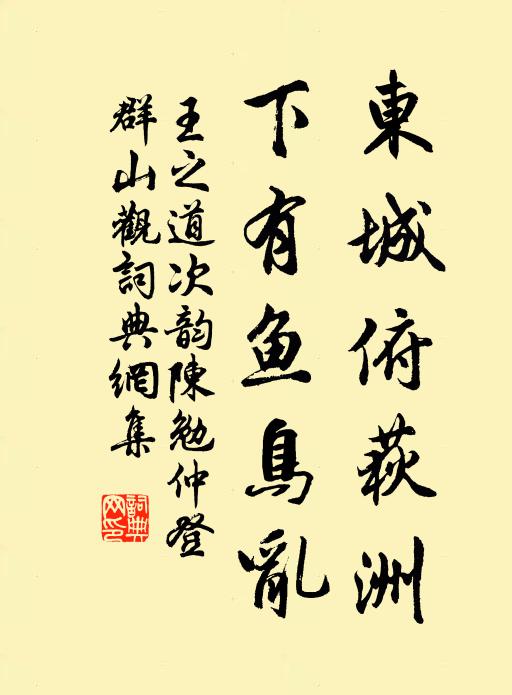 東城俯荻洲
下有鱼鳥亂
王之道次韵陳勉仲登
群山觀詞典網集
詞典網印